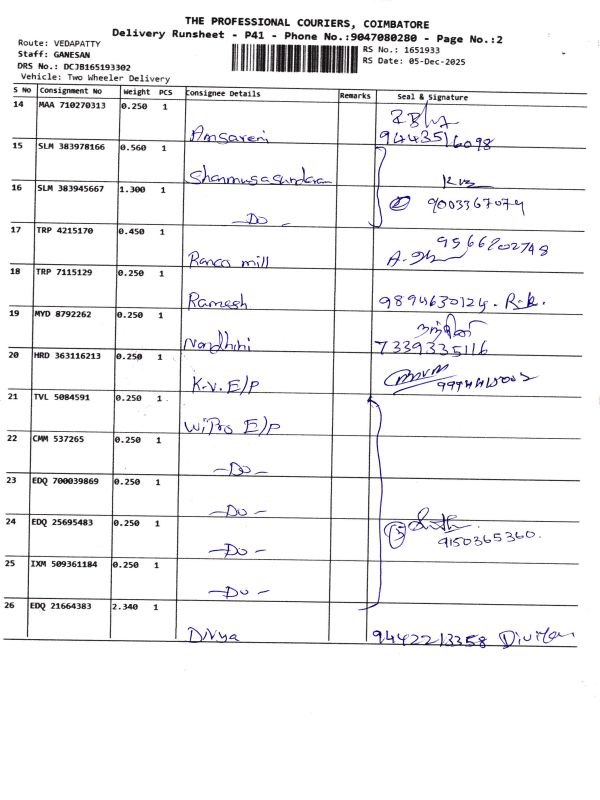 THE PROFESSIONAL COURIERS, COIMBATORE
Delivery Runsheet - P41 - Phone No.:9047080280 - Page No.:2
Route: VEDAPATTY
Staff: GANESAN
DRS No.: DCJB165193302
Vehicle: Two Wheeler Delivery
RS No.: 1651933
RS Date: 05-Dec-2025
S No Consignment No Weight PCS Consignee Details Remarks Seal & Signature
14 MAA 710270313 0.250 1
Amsaveni 9443516098
15 SLM 383978166 0.560 1
Shanmugasundaram
16 SLM 383945667 1.300 1
-Do- 2 9003367074
17 TRP 4215170 0.450 1
Ranco mill 9566202748
18 TRP 7115129 0.250 1
Ramesh 9894630124. R.R.
19 MYD 8792262 0.250 1
நந்தினி
Nandhini 7339335116
20 HRD 363116213 0.250 1
K.V. E/P
21 TVL 5084591 0.250 1
Wipro E/P
22 CMM 537265 0.250 1
-Do-
23 EDQ 700039869 0.250 1
-Do-
24 EDQ 25695483 0.250 1
-Do- 5 9150365360.
25 IXM 509361184 0.250 1
-Do-
26 EDQ 21664383 2.340 1
Divya 9442213358